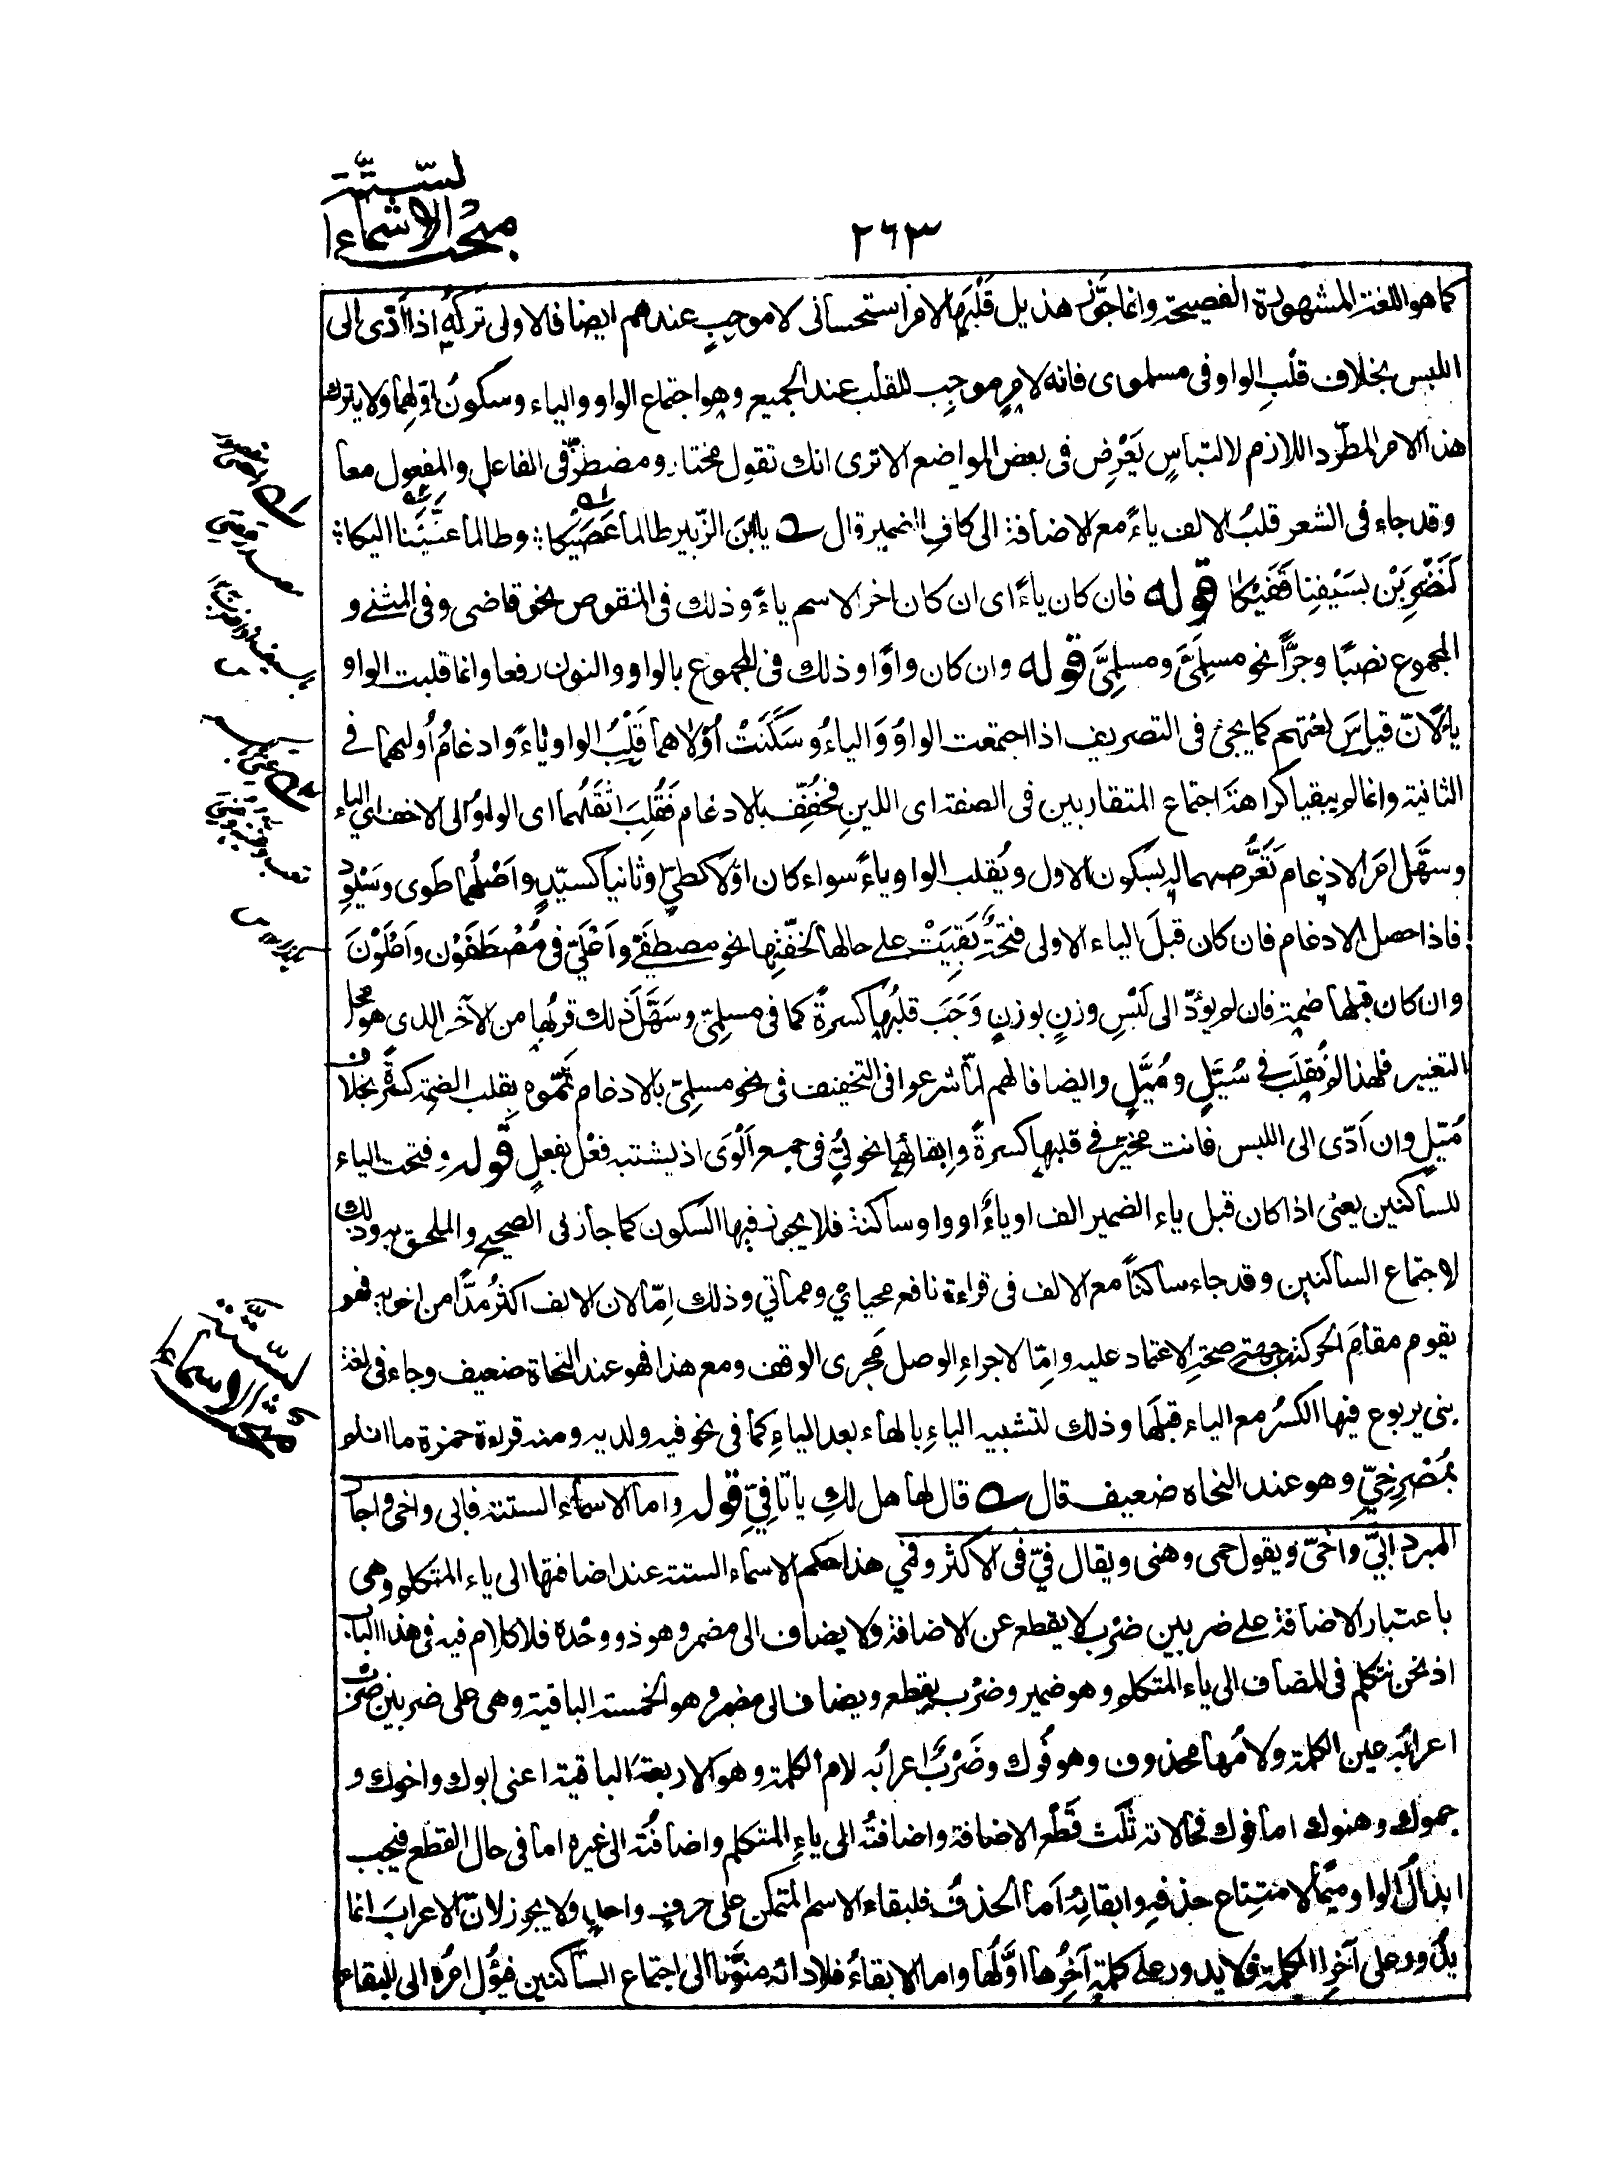 مبحث الاسماء الستّة
٢٦٣
كما هو اللغة المشهورة الفصيحة وانما جوّز هذيل قَلْبَها لامرٍ استحسانى لا موجبٍ عندهم ايضا فالاولى تركُه اذا ادّى الى
اللبس بخلاف قلْبِ الواو فى مسلموى فانه لامرٍ موجِب للقلب عند الجميع وهو اجتماع الواو والياء وسكونُ اوّلِهما ولا يترك
هذا الامر المطرّد اللازم لالتباسٍ يَعْرِض فى بعض المواضع الا ترى انك تقول مختار ومضطرّ فى الفاعل والمفعول معا
وقد جاء فى الشعر قلبُ الالف ياءً مع الاضافة الى كافِ الضمير قال يا ابنَ الزّبير طالما عَصَيْكا ؛ وطالما عَنَّيْتَنا اليكا ؛
لَنَضْرِبَنْ بسَيْفِنا قَفَيْكا قوله فان كان ياءً اى ان كان اخر الاسم ياءً وذلك فى المنقوص نحو قاضى وفى المثنى و
المجموع نصبًا وجرًّا نحو مسلِمَىَّ ومسلِمِىَّ قوله وان كان واوًا وذلك فى المجموع بالواو والنون رفعا وانما قلبت الواو
ياءً لانّ قياسَ لغتهم كما يجئ فى التصريف اذا اجتمعت الواوُ وَالياءُ وسَكَنَتْ اُوْلاهما قَلْبُ الواو ياءً وادغامُ اُولٰهما فى
الثانية وانما لم يبقيا كراهةَ اجتماع المتقاربين فى الصفة اى اللينِ فخُفِّف بالادغام فقُلِبَ اثقَلُهما اى الواوُ الى الاخف اى الياء
وسهَّل امرَ الادغام تَعَرُّضهما له بسكون الاول ويُقلب الواو ياءً سواء كان اوّلا كطىّ او ثانيا كسيّدٍ واَصْلُهما طَوى وسَيْوِد
فاذا حصل الادغام فان كان قبلَ الياء الاولى فتحةٌ بَقِيَتْ على حالها لخفّتِها نحو مصطفَىّ واَعْلَىّ فى مُصْطَفَوْن واَعْلَوْنَ
وان كان قبلها ضمة فان لم يؤدّ الى لَبْسِ وزنٍ بوزنٍ وَجَبَ قلبُها كسرةً كما فى مسلِمىّ وسَهَّلَ ذلك قربُها من الآخر الذى هو محل
التغيير فلهذا لم تُقلَب فى سُيَّلٍ ومُيَّلٍ وايضا فانهم لمّا شرعوا فى التخفيف فى نحو مسلمِىّ بالادغام تَمَّموه بقلب الضمة كسرةً بخلاف
مُيّلٍ وان اَدّى الى اللبس فانت مخيَّر فى قلبها كسرةً وابقائها نحو لُىٍّ فى جمع اَلْوَى اذ يشتبه فُعْل بفِعلٍ قوله وفتحت الياء
للساكنين يعنى اذا كان قبل ياء الضمير الف او ياءٌ او واو ساكنة فلا يجوز فيها السكون كما جاز فى الصحيح والملحق به وذلك
لاجتماع الساكنين وقد جاء ساكناً مع الالف فى قراءة نافع محياىْ ومماتي وذلك اِمّا لان الالف اكثرُ مدًّا من اخويه فهو
يقوم مقامَ الحركة من جهة صحة الاعتماد عليه وامّا لاجراءِ الوصل مَجرى الوقف ومع هذا فهو عند النحاة ضعيف وجاء فى لغة
بنى يربوع فيها الكسرُ مع الياء قبلَها وذلك لتشبيه الياءِ بالهاء بعد الياءِ كما فى نحو فيه ولديه ومنه قراءة حمزة ما انتم
بمُصْرِخِىِّ وهو عند النحاه ضعيف قال قال لها هل لكِ يا تا فِىِّ قوله واما الاسماء الستة فابى واخى واجاز
المبرد ابِىَّ واخِىّ ويقول حمى وهنى ويقال فِىّ فى الاكثر وفمى هذا حكم الاسماء الستة عند اضافتها الى ياء المتكلم وهى
باعتبار الاضافة على ضربين ضرْب لا يقطع عن الاضافة ولا يضاف الى مضمر وهو ذو ووحْده فلا كلام فيه فى هذا الباب
اذ نحن نتكلم فى المضاف الى ياء المتكلم وهو ضمير وضرْب يقطع ويضاف الى مضمر وهو الخمسة الباقية وهى على ضربين ضرْب
اعرابُه عين الكلمة ولامُها محذوف وهو فُوك وضَرْبٌ اعرابُه لام الكلمة وهو الاربعةُ الباقية اعنى ابوك واخوك و
حموك وهنوك اما فوك فحالاته ثَلٰث قَطْعُ الاضافة واضافتُه الى ياءِ المتكلم واضافتُه الى غيره اما فى حال القطع فيجب
ابدالُ الواو ميمًا لامتناع حذفِه وابقائِه اما الحذفُ فلبقاء الاسم المتمكن على حرفٍ واحدٍ ولا يجوز لانّ الاعرابَ انما
يدُور على آخرِ الكلمة فلا يدور على كلمةٍ آخِرُها اوَّلُها واما الابقاءُ فلادائه منوَّناً الى اجتماع الساكنين فيؤُل امرُه الى البقاء
مبحث الاسماء الستّة